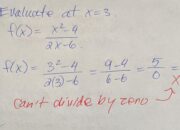 Evaluate at x=3
f(x) = x²-4
2x-6
f(x) = 3²-4 / 2(3)-6 = 9-4 / 6-6 = 5 / 0 =
x
can't divide by zero